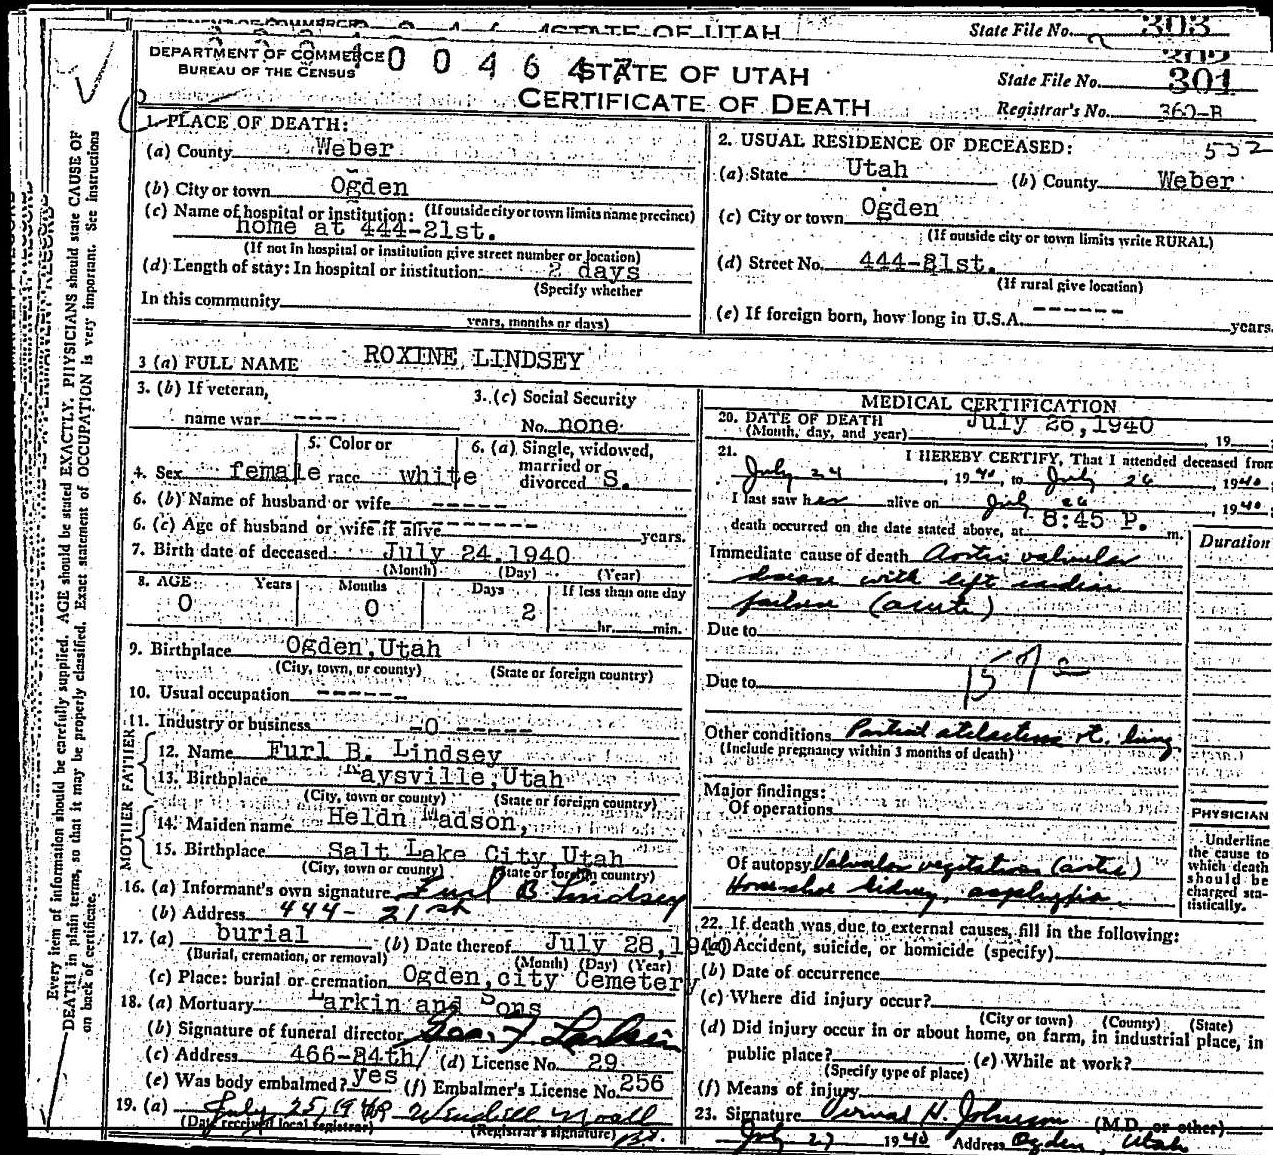 STATE OF UTAH
State File No. 303
DEPARTMENT OF COMMERCE
BUREAU OF THE CENSUS
STATE OF UTAH
CERTIFICATE OF DEATH
State File No. 301
Registrar's No. 360-B
1. PLACE OF DEATH:
(a) County Weber
(b) City or town Ogden
(c) Name of hospital or institution: (If outside city or town limits name precinct)
home at 444-21st.
(If not in hospital or institution give street number or location)
(d) Length of stay: In hospital or institution 2 days
(Specify whether
In this community
years, months or days)
2. USUAL RESIDENCE OF DECEASED: 532
(a) State Utah (b) County Weber
(c) City or town Ogden
(If outside city or town limits write RURAL)
(d) Street No. 444-21st.
(If rural give location)
(e) If foreign born, how long in U.S.A. ------ years.
3 (a) FULL NAME ROXINE LINDSEY
3. (b) If veteran,
name war ---
3. (c) Social Security
No. none
4. Sex female
5. Color or
race white
6. (a) Single, widowed,
married or
divorced S.
6. (b) Name of husband or wife -----
6. (c) Age of husband or wife if alive ------ years.
7. Birth date of deceased July 24, 1940
(Month) (Day) (Year)
8. AGE: Years Months Days If less than one day
0 0 2 hr. min.
9. Birthplace Ogden, Utah
(City, town, or county) (State or foreign country)
10. Usual occupation ------
11. Industry or business -0 -----
FATHER
12. Name Furl B. Lindsey
13. Birthplace Kaysville, Utah
(City, town or county) (State or foreign country)
MOTHER
14. Maiden name Heldn Madson,
15. Birthplace Salt Lake City, Utah
(City, town or county) (State or foreign country)
16. (a) Informant's own signature Furl B Lindsey
(b) Address 444- 21st
17. (a) burial (b) Date thereof July 28, 1940
(Burial, cremation, or removal) (Month) (Day) (Year)
(c) Place: burial or cremation Ogden, city Cemetery
18. (a) Mortuary Larkin and Sons
(b) Signature of funeral director Geo. F. Larkin
(c) Address 466-24th/ (d) License No. 29
(e) Was body embalmed? yes (f) Embalmer's License No. 256
19. (a) July 25, 1940 Wendell Noall
(Day received local registrar) (Registrar's signature)
MEDICAL CERTIFICATION
20. DATE OF DEATH July 26, 1940
(Month, day, and year) , 19
21. I HEREBY CERTIFY, That I attended deceased from
July 24, 1940, to July 26, 1940;
I last saw her alive on July 26, 1940;
death occurred on the date stated above, at 8:45 P. m.
Duration
Immediate cause of death Aortic valvular
disease with left cardiac
failure (acute)
Due to
157
Due to
Other conditions Partial atelectasis rt. lung
(Include pregnancy within 3 months of death)
Major findings:
Of operations
Of autopsy Valvular vegetations (aortic)
Horseshoe kidney, asphyxia
PHYSICIAN
Underline
the cause to
which death
should be
charged sta-
tistically.
22. If death was due to external causes, fill in the following:
(a) Accident, suicide, or homicide (specify)
(b) Date of occurrence
(c) Where did injury occur?
(City or town) (County) (State)
(d) Did injury occur in or about home, on farm, in industrial place, in
public place? (e) While at work?
(Specify type of place)
(f) Means of injury
23. Signature Vernal H. Johnson (M.D. or other)
July 27 1940 Address Ogden, Utah
Every item of information should be carefully supplied. AGE should be stated EXACTLY. PHYSICIANS should state CAUSE OF
DEATH in plain terms, so that it may be properly classified. Exact statement of OCCUPATION is very important. See instructions
on back of certificate.